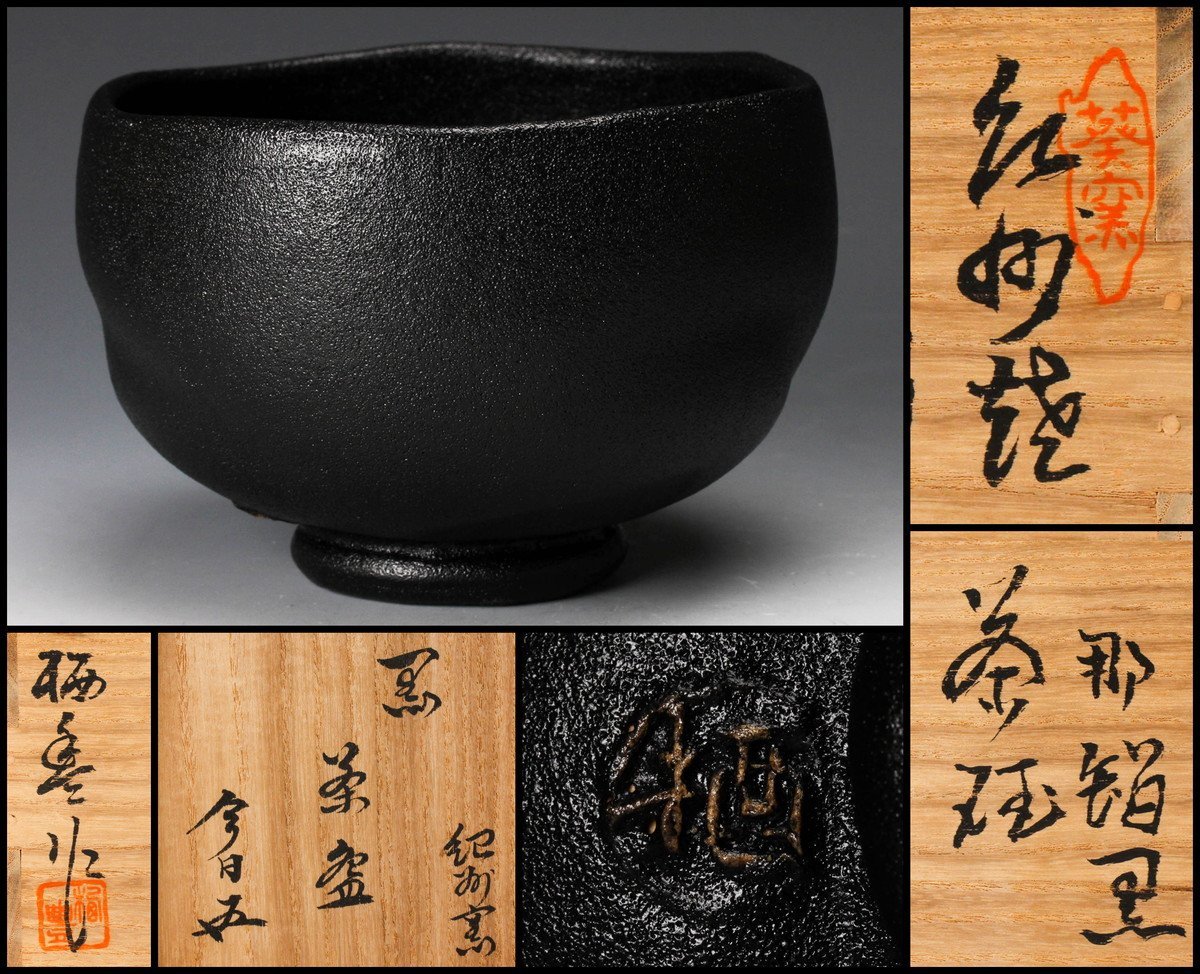 葵窯
紀州焼
那智黒
茶碗
栖豊作
栖豊
紀州窯
黒
茶盌
今日庵
栖